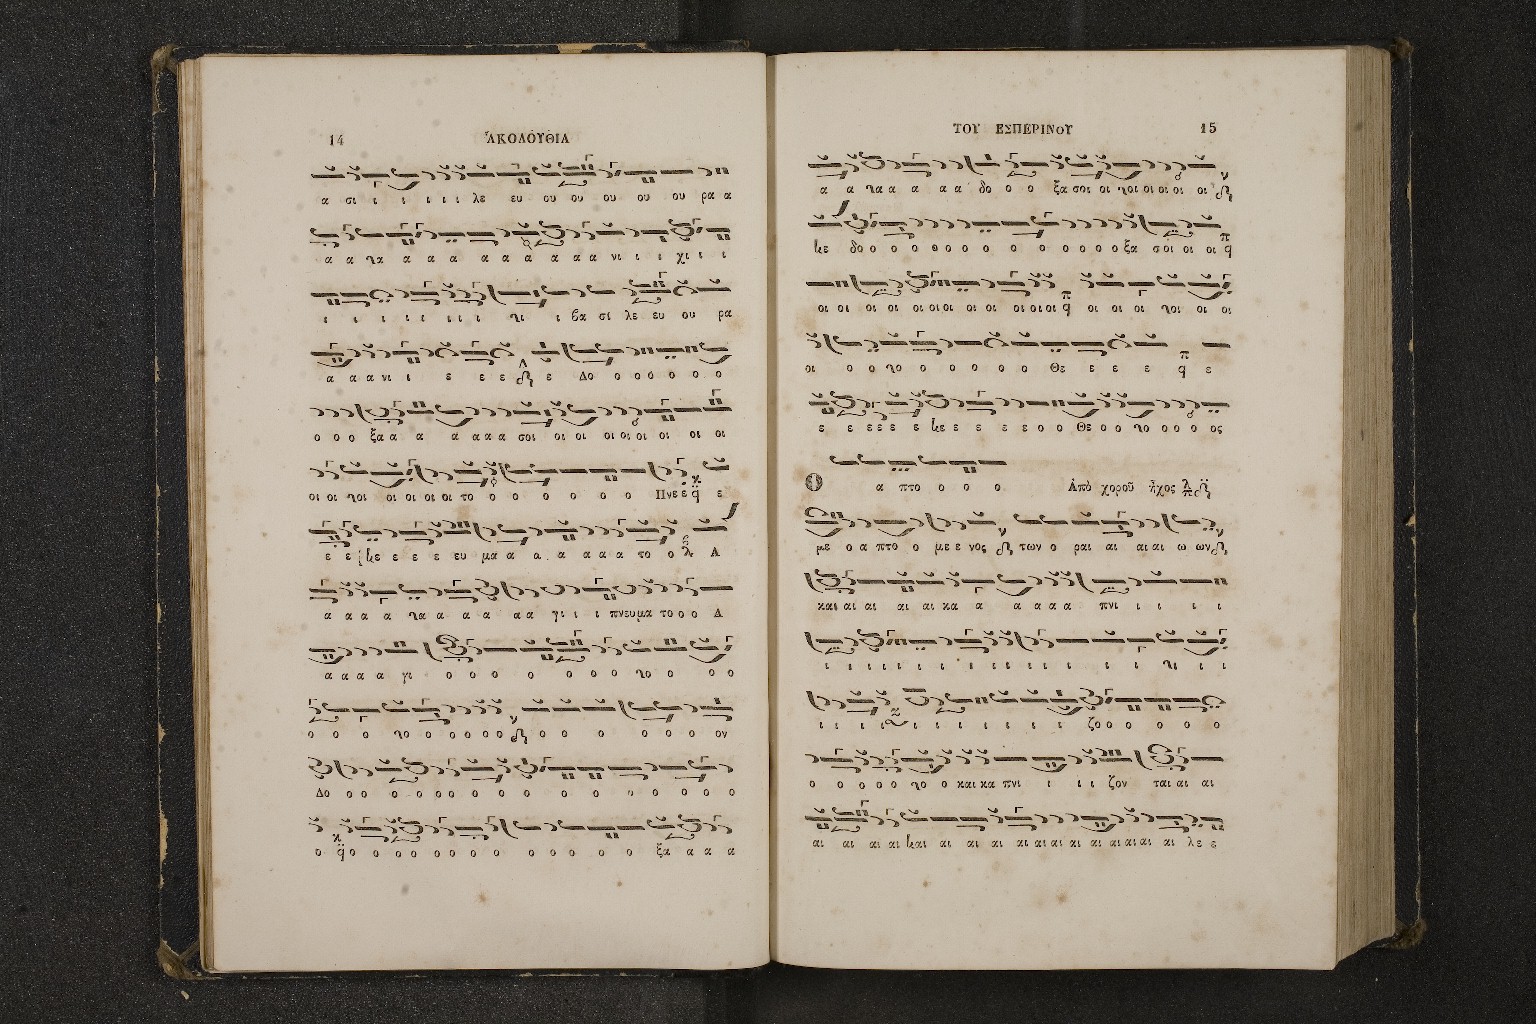 14 ἈΚΟΛΟΥΘΙΑ
α σι ι ι ι ι ι λε ευ ου ου ου ου ου ρα α
α α γα α α α α α α α α α νι ι ι χι ι ι
ι ι ι ι ι ι ι γι ι βα σι λε ευ ου ρα
α α α νι ι ε ε ε ε Δο ο ο ο ο ο ο
ο ο ο ξα α α α α α α σοι οι οι οι οι οι οι οι οι
οι οι γοι οι οι οι οι το ο ο ο ο ο ο Πνε ε ε
ε ε κε ε ε ε ευ μα α α α α α α το ο Α
α α α α γα α α α α α γι ι ι πνευμα το ο ο Α
α α α α γι ο ο ο ο ο ο ο γο ο ο ο
ο ο ο γο ο ο ο ο ο ο ο ο ο ο ο ο ον
Δο ο ο ο ο ο ο ο ο ο ο ο ο ο ο ο ο
ο ο ο ο ο ο ο ο ο ο ο ο ο ξα α α α
ΤΟΥ ΕΣΠΕΡΙΝΟΥ 15
α α γα α α α α δο ο ο ξα σοι οι γοι οι οι οι οι
κε δο ο ο ο ο ο ο ο ο ο ο ο ο ο ξα σοι οι οι
οι οι οι οι οι οι οι οι οι οι οι οι οι οι οι γοι οι οι
οι ο ο γο ο ο ο ο ο Θε ε ε ε ε
ε ε ε ε ε ε κε ε ε ε ε ο ο Θε ο ο γο ο ο ο ος
α πτο ο ο ο Ἀπὸ χοροῦ ἦχος
με ο α πτο ο με ε νος των ο ραι αι αι αι ω ων
και αι αι αι αι κα α α α α α πνι ι ι ι ι
ι ι ι ι ι ι ι ι ι ι ι ι ι ι ι γι ι ι
ι ι ι ι ι ι ι ι ι ι ι ζο ο ο ο ο ο
ο ο ο ο ο γο ο και κα πνι ι ι ι ζον ται αι αι
αι αι αι αι και αι αι αι αι αι αι αι αι αι αι αι αι λε ε